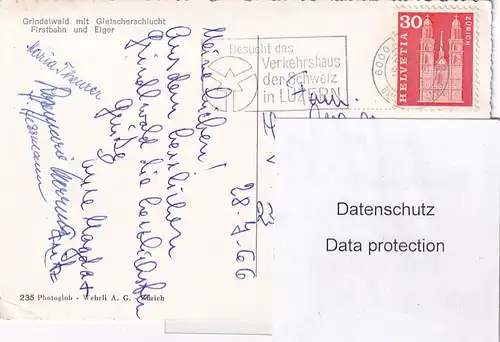 Grindelwald mit Gletscherschlucht
Firstbahn und Eiger
Besucht das
Verkehrshaus
der Schweiz
in LUZERN
30
HELVETIA
ZÜRICH
6000
Fam.
28.7.66
Meine Lieben!
Aus dem herrlichen
Grindelwald die herzlichsten
Grüße
Hermann
235 Photoglob - Wehrli A. G. - Zürich
Datenschutz
Data protection